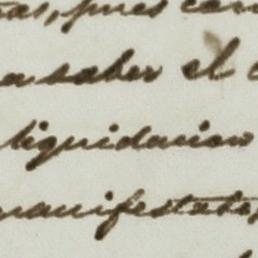 pues
a saber el
liquidacion
manifestato